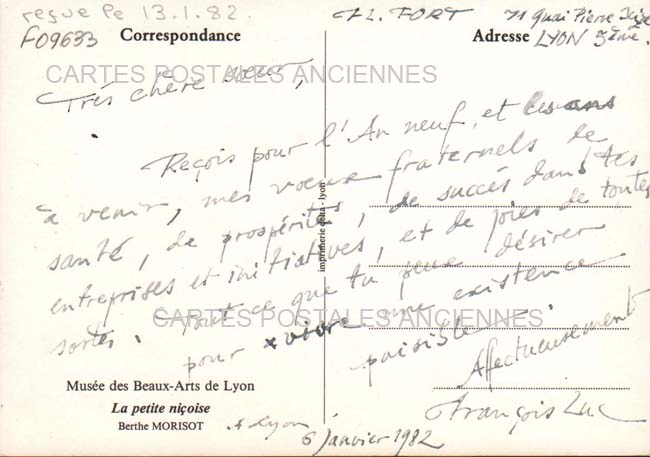 reçue le 13.1.82.
F09633
CH. FORT 71 Quai Pierre Scize
LYON 5ème.
Correspondance
Adresse
CARTES POSTALES ANCIENNES
Très chère sœur,
Reçois pour l'An neuf, et les ans
à venir, mes vœux fraternels de
santé, de prospérités, de succès dans tes
entreprises et initiatives, et de joies de toutes
sortes. Tout ce que tu peux désirer
pour vivre une existence
paisible.
CARTES POSTALES ANCIENNES
Affectueusement
François Luc
imprimerie delta - lyon
Musée des Beaux-Arts de Lyon
La petite niçoise
Berthe MORISOT
A Lyon
6 Janvier 1982